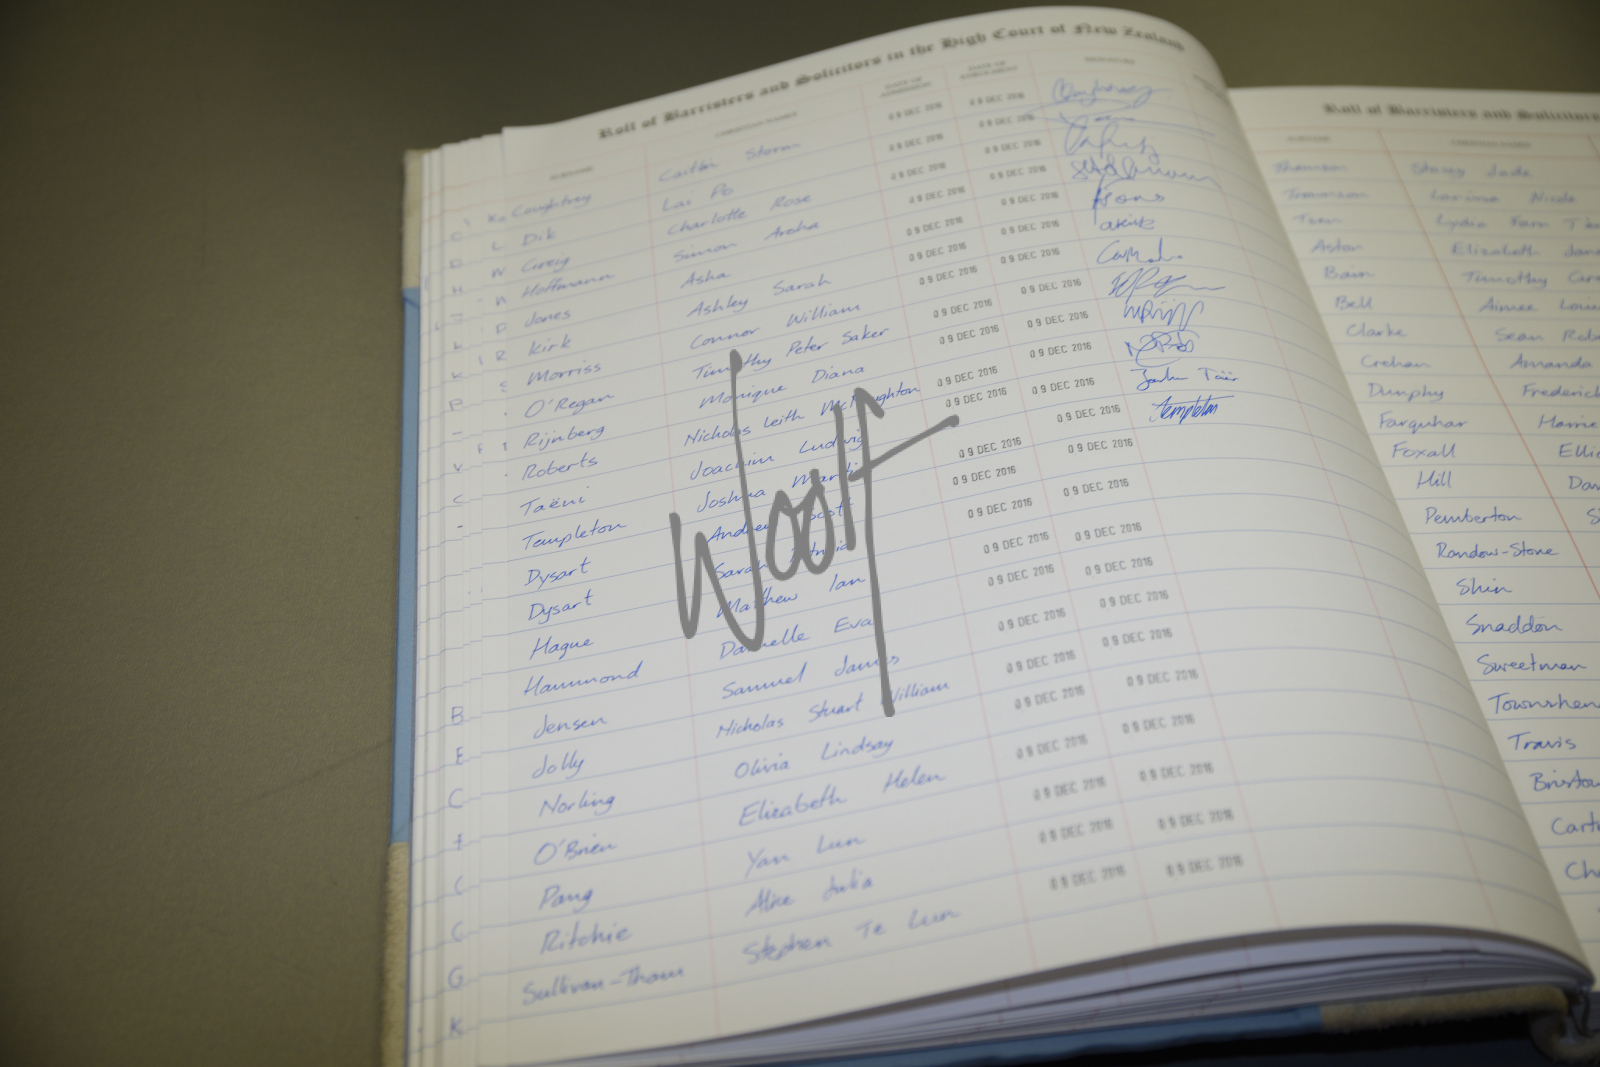 Roll of Barristers and Solicitors in the High Court of New Zealand
SURNAME CHRISTIAN NAMES DATE OF ADMISSION DATE OF ENROLMENT SIGNATURE
Coughtrey Caitlin Storm 09 DEC 2016 09 DEC 2016
Dik Lai Po 09 DEC 2016 09 DEC 2016
Grey Charlotte Rose 09 DEC 2016 09 DEC 2016
Hoffmann Simon Aroha 09 DEC 2016 09 DEC 2016
Jones Asha 09 DEC 2016 09 DEC 2016
Kirk Ashley Sarah 09 DEC 2016 09 DEC 2016
Morriss Connor William 09 DEC 2016 09 DEC 2016
O'Regan Timothy Peter Saker 09 DEC 2016 09 DEC 2016
Rijnberg Monique Diana 09 DEC 2016 09 DEC 2016
Roberts Nicholas Leith McNaughton 09 DEC 2016 09 DEC 2016
Joachim Ludwig 09 DEC 2016 09 DEC 2016
Templeton Joshua Martin 09 DEC 2016 09 DEC 2016 Templeton
Dysart Andrew Scott 09 DEC 2016 09 DEC 2016
Dysart Sarah Patricia 09 DEC 2016 09 DEC 2016
Hague Matthew Ian 09 DEC 2016 09 DEC 2016
Hammond Danielle Eva 09 DEC 2016 09 DEC 2016
Jensen Samuel James 09 DEC 2016 09 DEC 2016
Jolly Nicholas Stuart William 09 DEC 2016 09 DEC 2016
Norling Olivia Lindsay 09 DEC 2016 09 DEC 2016
O'Brien Elizabeth Helen 09 DEC 2016 09 DEC 2016
Pang Yan Lun 09 DEC 2016 09 DEC 2016
Ritchie Alice Julia 09 DEC 2016 09 DEC 2016
Sullivan-Thom Stephen Te Lun
Woolf
Roll of Barristers and Solicitors
SURNAME CHRISTIAN NAMES
Thomson Stacey Jade
Tomonson Lorraine Nicole
Lydia
Astor Elizabeth Jane
Bain Timothy
Bell Aimee
Clarke Sean
Crehan Amanda
Dunphy Frederick
Farquhar
Foxall
Hill
Pemberton
Randow-Stone
Shin
Snaddon
Sweetman
Travis